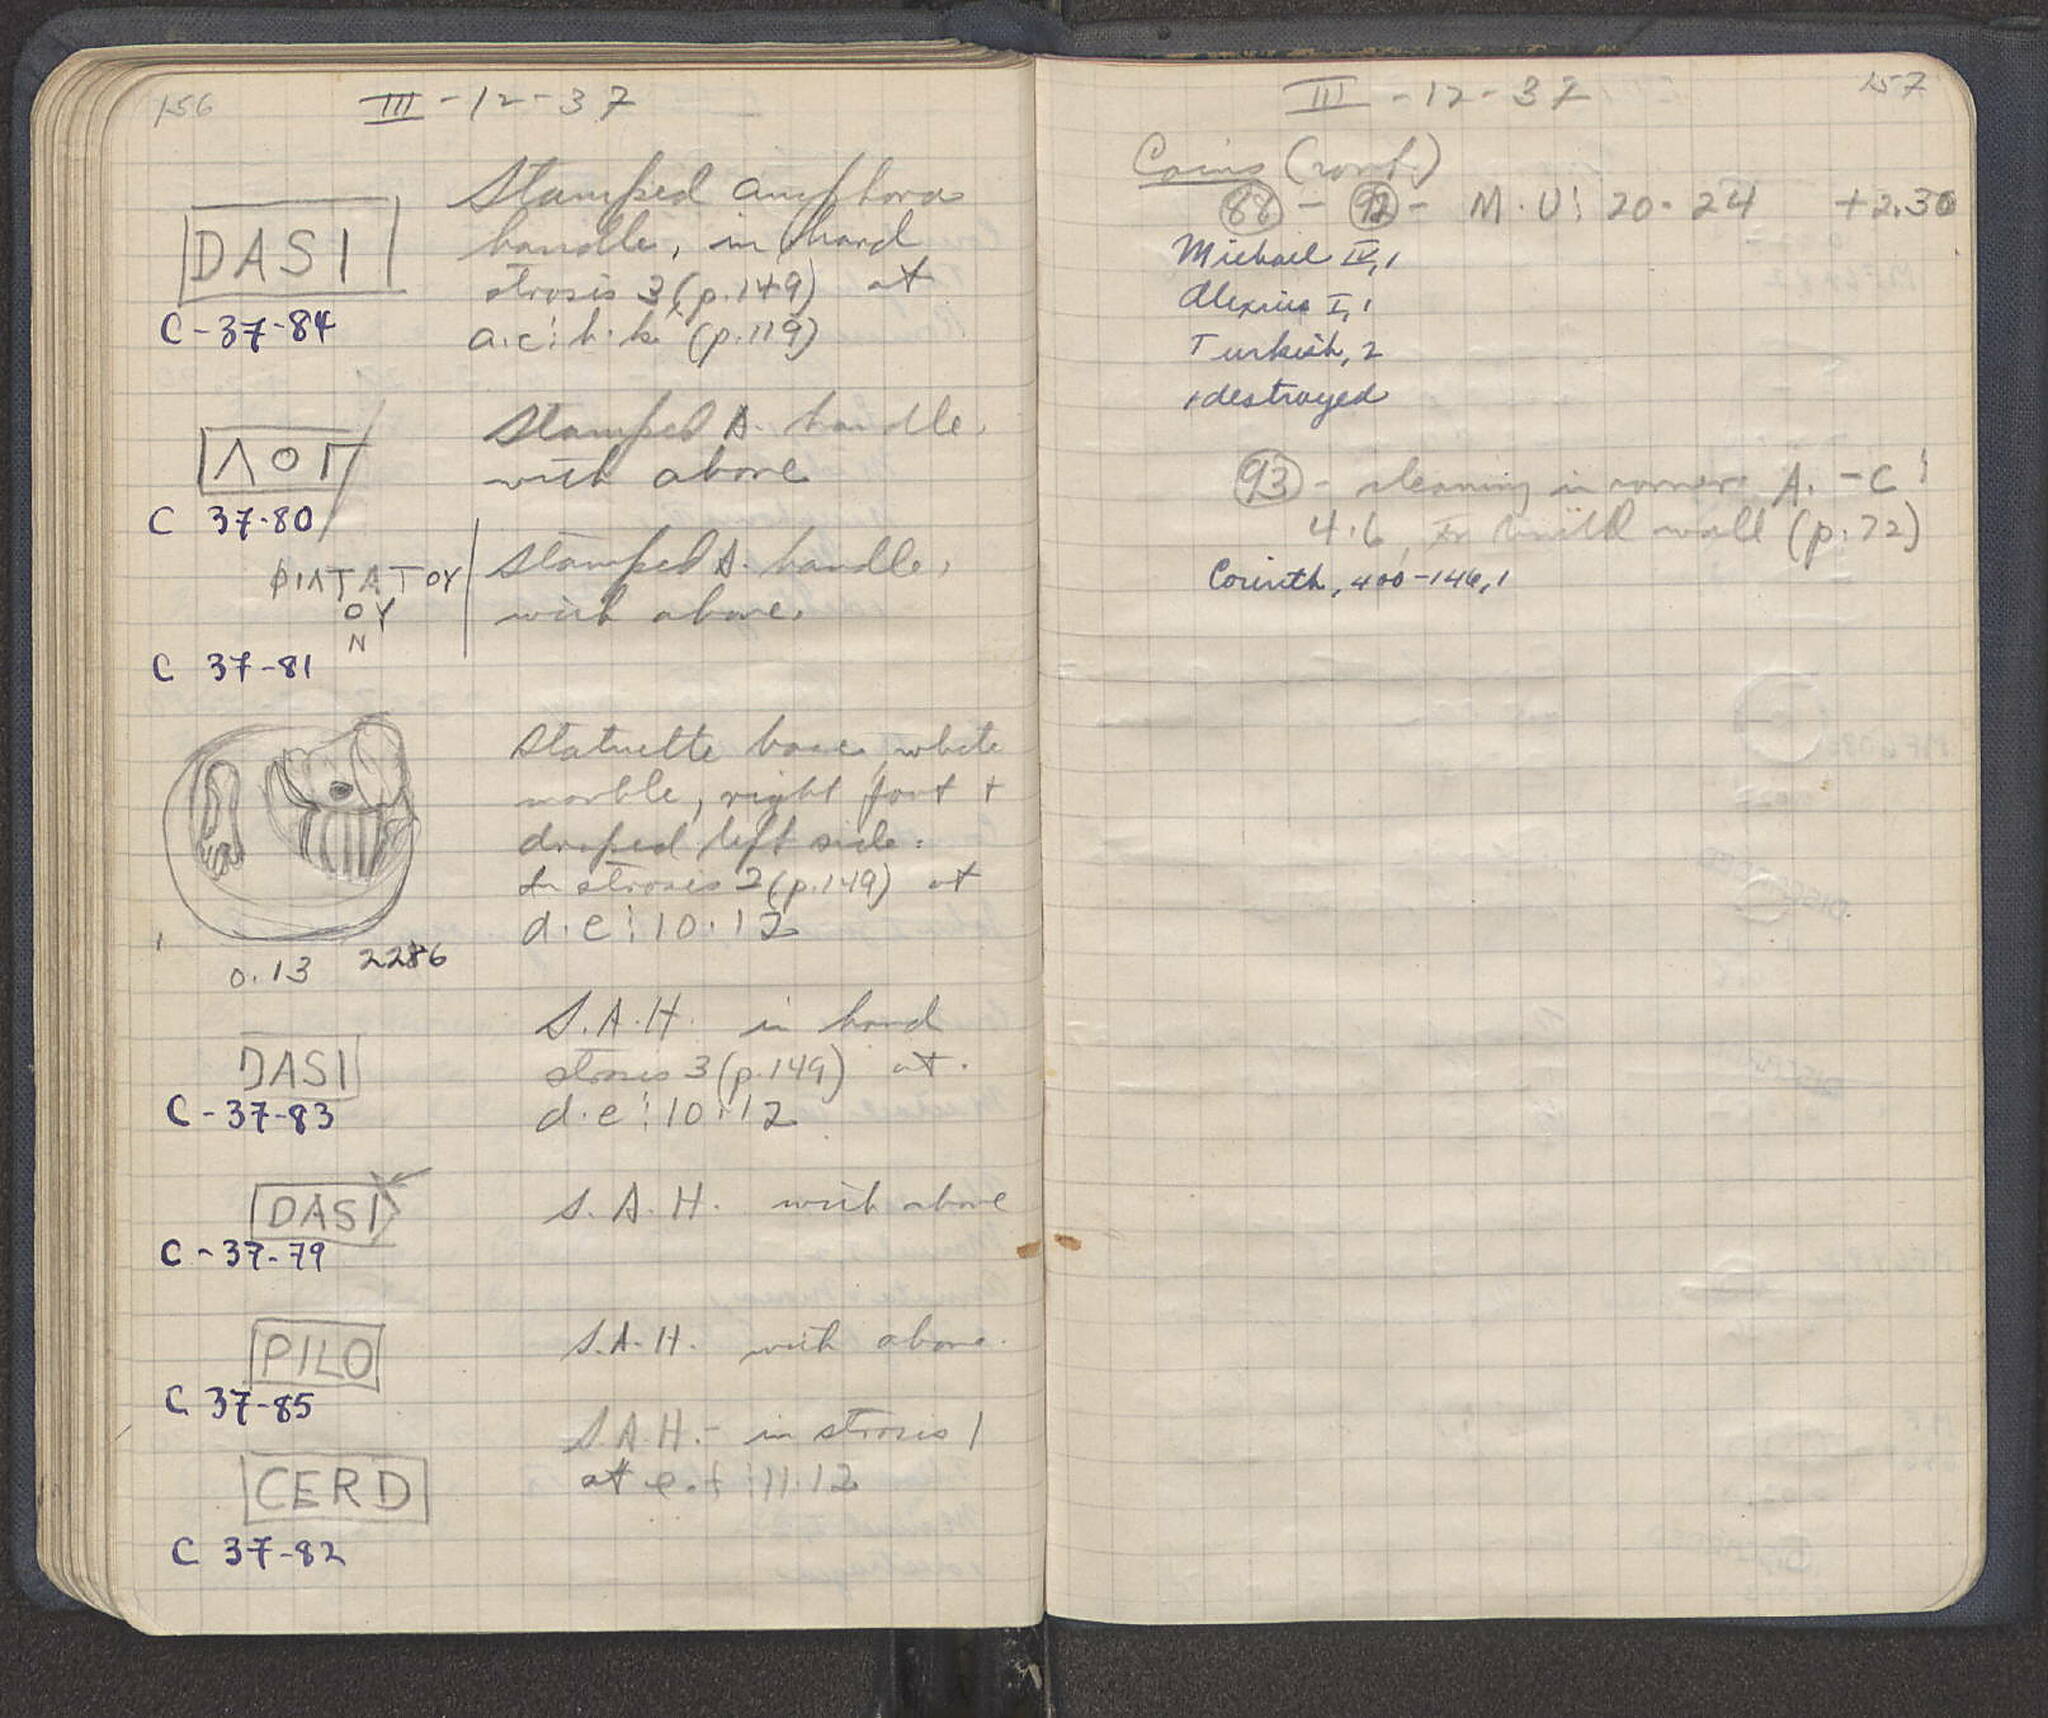 156
III - 12 - 37
DASI
C - 37 - 84
Stamped amphora
handle, in hard
strosis 3 (p. 149) at
a.c: h.k (p. 119)
ΛΟΓ
C 37-80
Stamped A. handle,
with above
ΦΙΛΤΑΤΟΥ
ΟΥ
Ν
C 37-81
Stamped A. handle,
with above.
Statuette base, white
marble, right foot +
draped left side.
In strosis 2 (p. 149) at
d.e: 10.12
0.13 2286
DASI
C - 37-83
S.A.H. in hard
strosis 3 (p. 149) at
d.e: 10.12
DASI
C - 37-79
S.A.H. with above
PILO
C 37-85
S.A.H. with above.
CERD
C 37-82
S.A.H. - in strosis 1
at e.f: 11.12
III - 12 - 37
157
Coins (cont.)
88 - 92 - M.U: 20.24 +2.30
Michael IV, 1
Alexius I, 1
Turkish, 2
1 destroyed
93 - cleaning in corner A. - C:
4.6, wall (p. 72)
Corinth, 400-146, 1